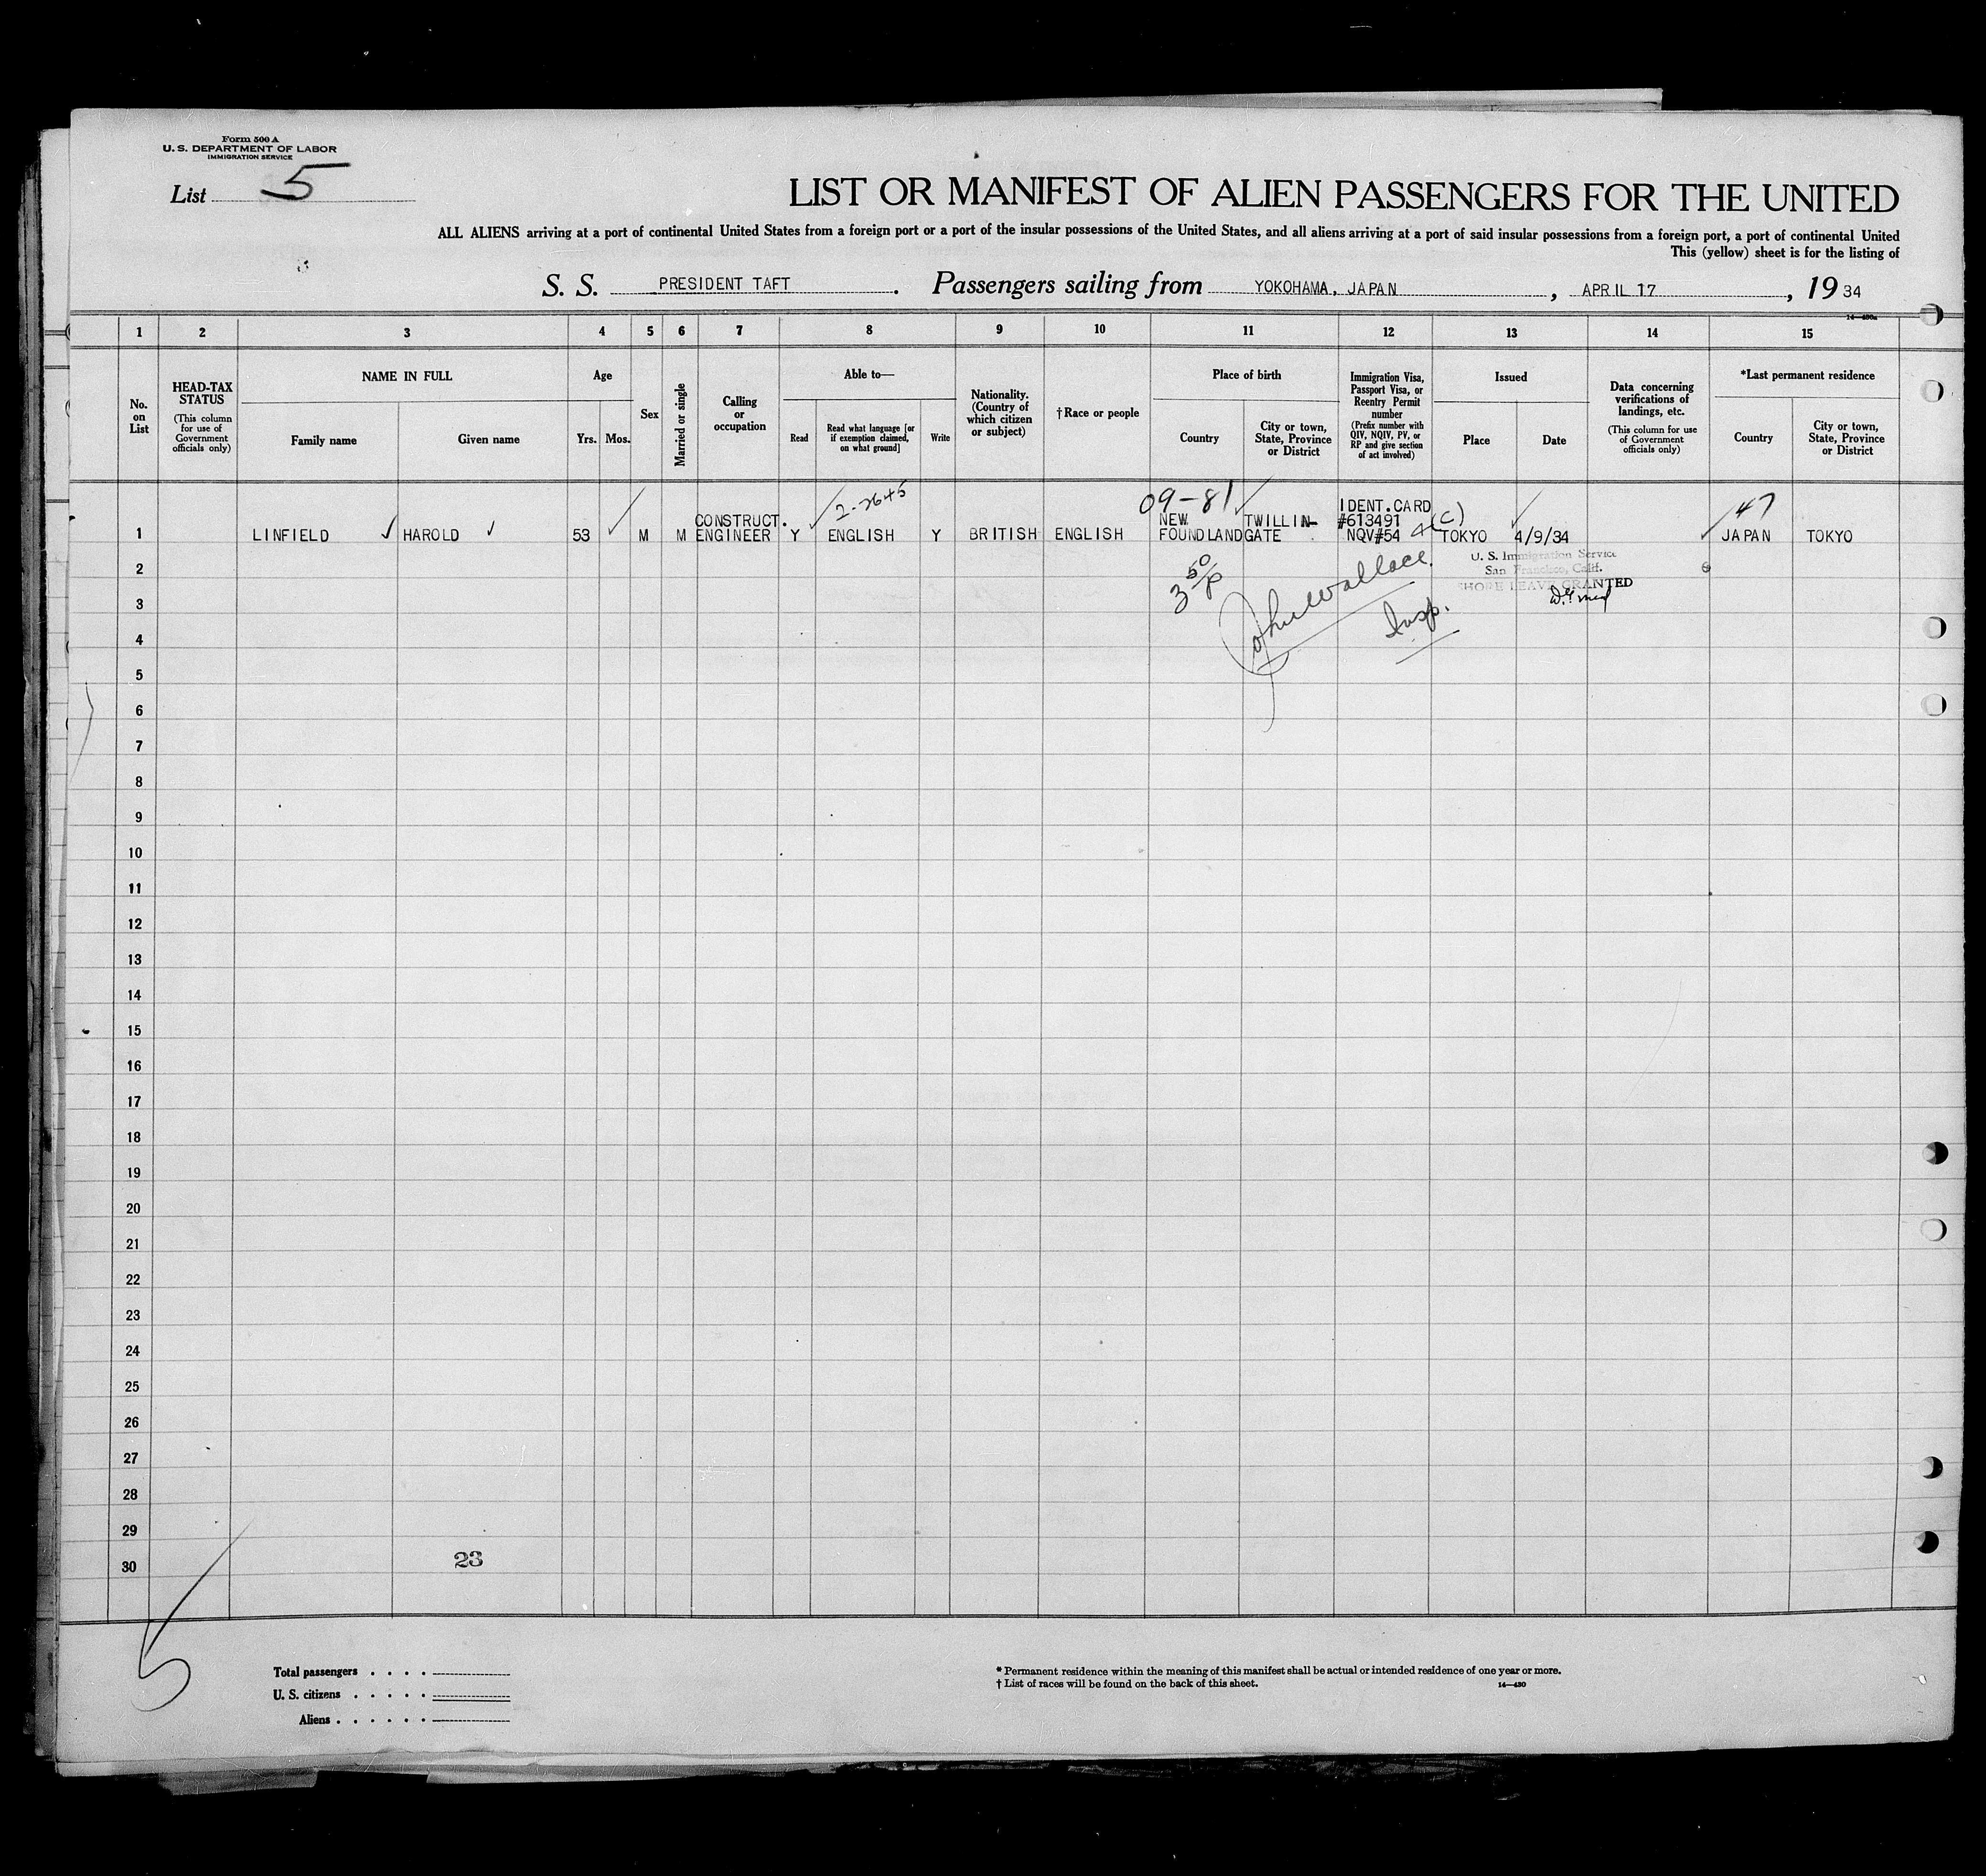 Form 500 A
U. S. DEPARTMENT OF LABOR
IMMIGRATION SERVICE
List 5
LIST OR MANIFEST OF ALIEN PASSENGERS FOR THE UNITED
ALL ALIENS arriving at a port of continental United States from a foreign port or a port of the insular possessions of the United States, and all aliens arriving at a port of said insular possessions from a foreign port, a port of continental United
This (yellow) sheet is for the listing of
S. S. PRESIDENT TAFT. Passengers sailing from YOKOHAMA, JAPAN, APRIL 17, 1934
1 2 3 4 5 6 7 8 9 10 11 12 13 14 15
No. on List
HEAD-TAX STATUS
(This column for use of Government officials only)
NAME IN FULL
Family name
Given name
Age
Yrs.
Mos.
Sex
Married or single
Calling or occupation
Able to—
Read
Read what language [or if exemption claimed, on what ground]
Write
Nationality. (Country of which citizen or subject)
†Race or people
Place of birth
Country
City or town, State, Province or District
Immigration Visa, Passport Visa, or Reentry Permit number
(Prefix number with QIV, NQIV, PV, or RP and give section of act involved)
Issued
Place
Date
Data concerning verifications of landings, etc.
(This column for use of Government officials only)
*Last permanent residence
Country
City or town, State, Province or District
2-2645
09-81
47
1 LINFIELD HAROLD 53 M M CONSTRUCT. ENGINEER Y ENGLISH Y BRITISH ENGLISH NEW FOUNDLAND TWILLIN-GATE IDENT.CARD #613491 NQV#54 4(C) TOKYO 4/9/34 JAPAN TOKYO
U. S. Immigration Service
San Francisco, Calif.
SHORE LEAVE GRANTED
John Wallace
Insp.
2
3
4
5
6
7
8
9
10
11
12
13
14
15
16
17
18
19
20
21
22
23
24
25
26
27
28
29
30
23
5
Total passengers . . . .
U. S. citizens . . . . .
Aliens . . . . . .
* Permanent residence within the meaning of this manifest shall be actual or intended residence of one year or more.
† List of races will be found on the back of this sheet.
14—430